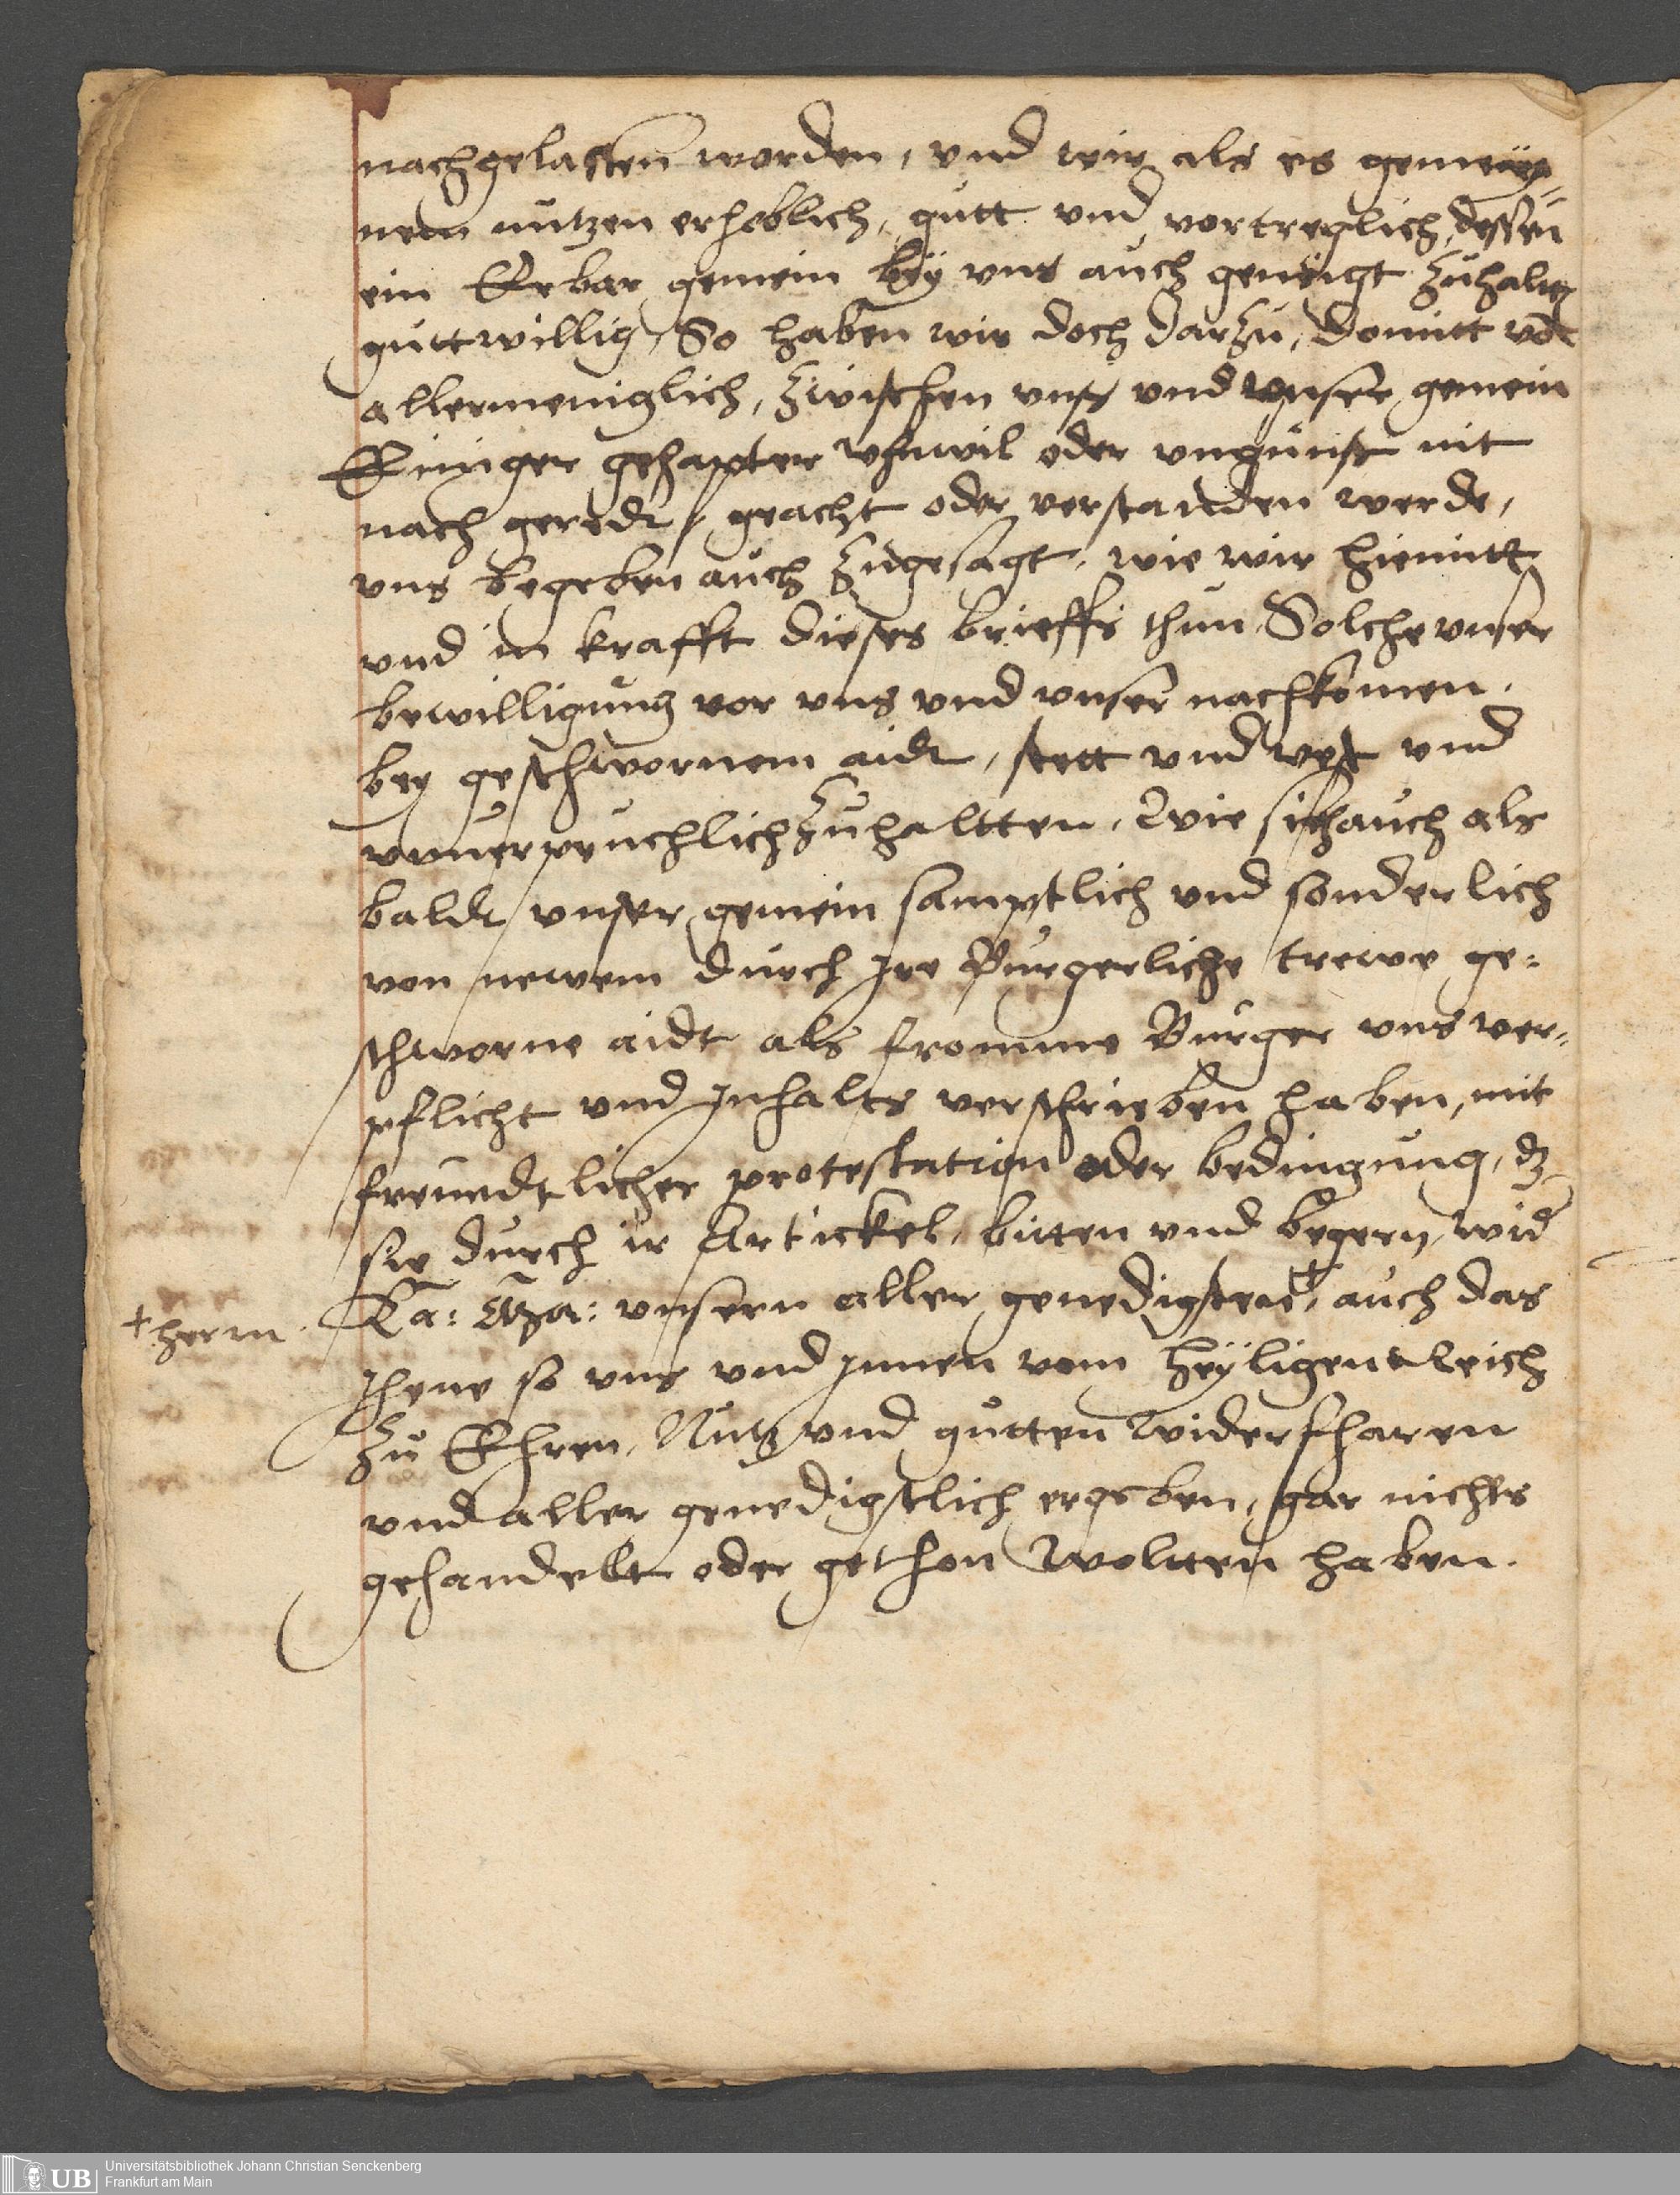 nachgelassen worden, vnd wir als es gemeÿ„
nem nutzen erheblich, gutt vnd vortreglich, dessen
ein Erbar gemein beÿ vns auch geneigt zuhalten
guttwillig, So haben wir doch darzu, domitt võ
allermeniglich, zwischen vnß vnd vnser gemein
Einiger gehapter vnwil oder vngunst nit
nach geredt, geacht oder verstanden werde,
vns begeben auch zugesagt, wie wir hiemitt
vnd in krafft dieses brieffs thun, Solche vnser
bewilligung vor vns vnd vnser nachkomen,
bey geschwornem aidt, stett vnd vest vnd
vnuerpruchlich zuhaltten, Wie sich auch als
baldt vnser gemein samptlich vnd sonderlich
von newem durch Ire Burgerliche trewe ge„
schworne aidt als fromme Burger vns ver„
pflicht vnd Inhalts verschrieben haben, mit
freundtlicher protestation oder bedingung, dz
sie durch ir Artickel, bitten vnd begern, wid
Ka: Ma: vnsern aller genedigsten +, auch das
+ herrn
Ihene so vns vnd Innen vom heÿligen Reich
zu Ehren, Nutz vnd gutten widerfharen
vnd aller genedigstlich ergeben, gar nichts
gehandelt oder gethon woltten haben.
Universitätsbibliothek Johann Christian Senckenberg
Frankfurt am Main
UB